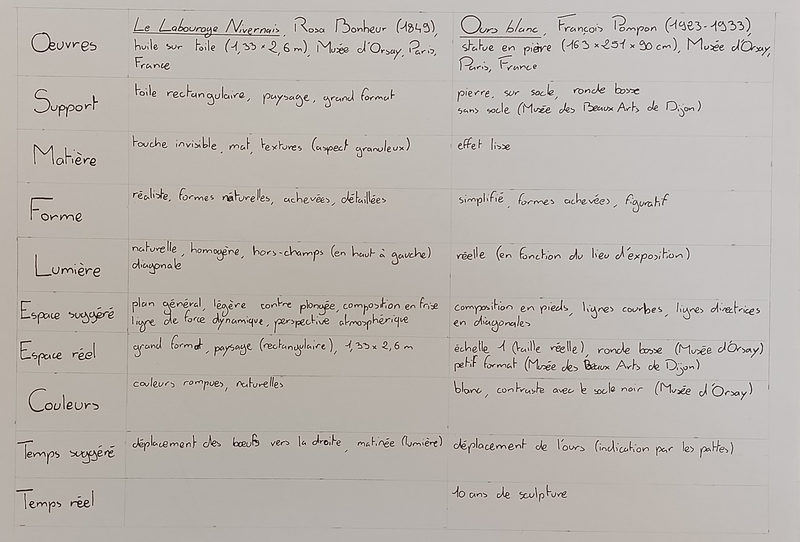 Œuvres
Le Labourage Nivernais, Rosa Bonheur (1849),
huile sur toile (1,33 × 2,6 m), Musée d'Orsay, Paris,
France
Ours blanc, François Pompon (1923-1933),
statue en pierre (163 × 251 × 90 cm), Musée d'Orsay,
Paris, France
Support
toile rectangulaire, paysage, grand format
pierre, sur socle, ronde bosse
sans socle (Musée des Beaux Arts de Dijon)
Matière
touche invisible, mat, textures (aspect granuleux)
effet lisse
Forme
réaliste, formes naturelles, achevées, détaillées
simplifié, formes achevées, figuratif
Lumière
naturelle, homogène, hors-champs (en haut à gauche)
diagonale
réelle (en fonction du lieu d'exposition)
Espace suggéré
plan général, légère contre plongée, composition en frise
ligne de force dynamique, perspective atmosphérique
composition en pieds, lignes courbes, lignes directrices
en diagonales
Espace réel
grand format, paysage (rectangulaire), 1,33 × 2,6 m
échelle 1 (taille réelle), ronde bosse (Musée d'Orsay)
petit format (Musée des Beaux Arts de Dijon)
Couleurs
couleurs rompues, naturelles
blanc, contraste avec le socle noir (Musée d'Orsay)
Temps suggéré
déplacement des bœufs vers la droite, matinée (lumière)
déplacement de l'ours (indication par les pattes)
Temps réel
10 ans de sculpture